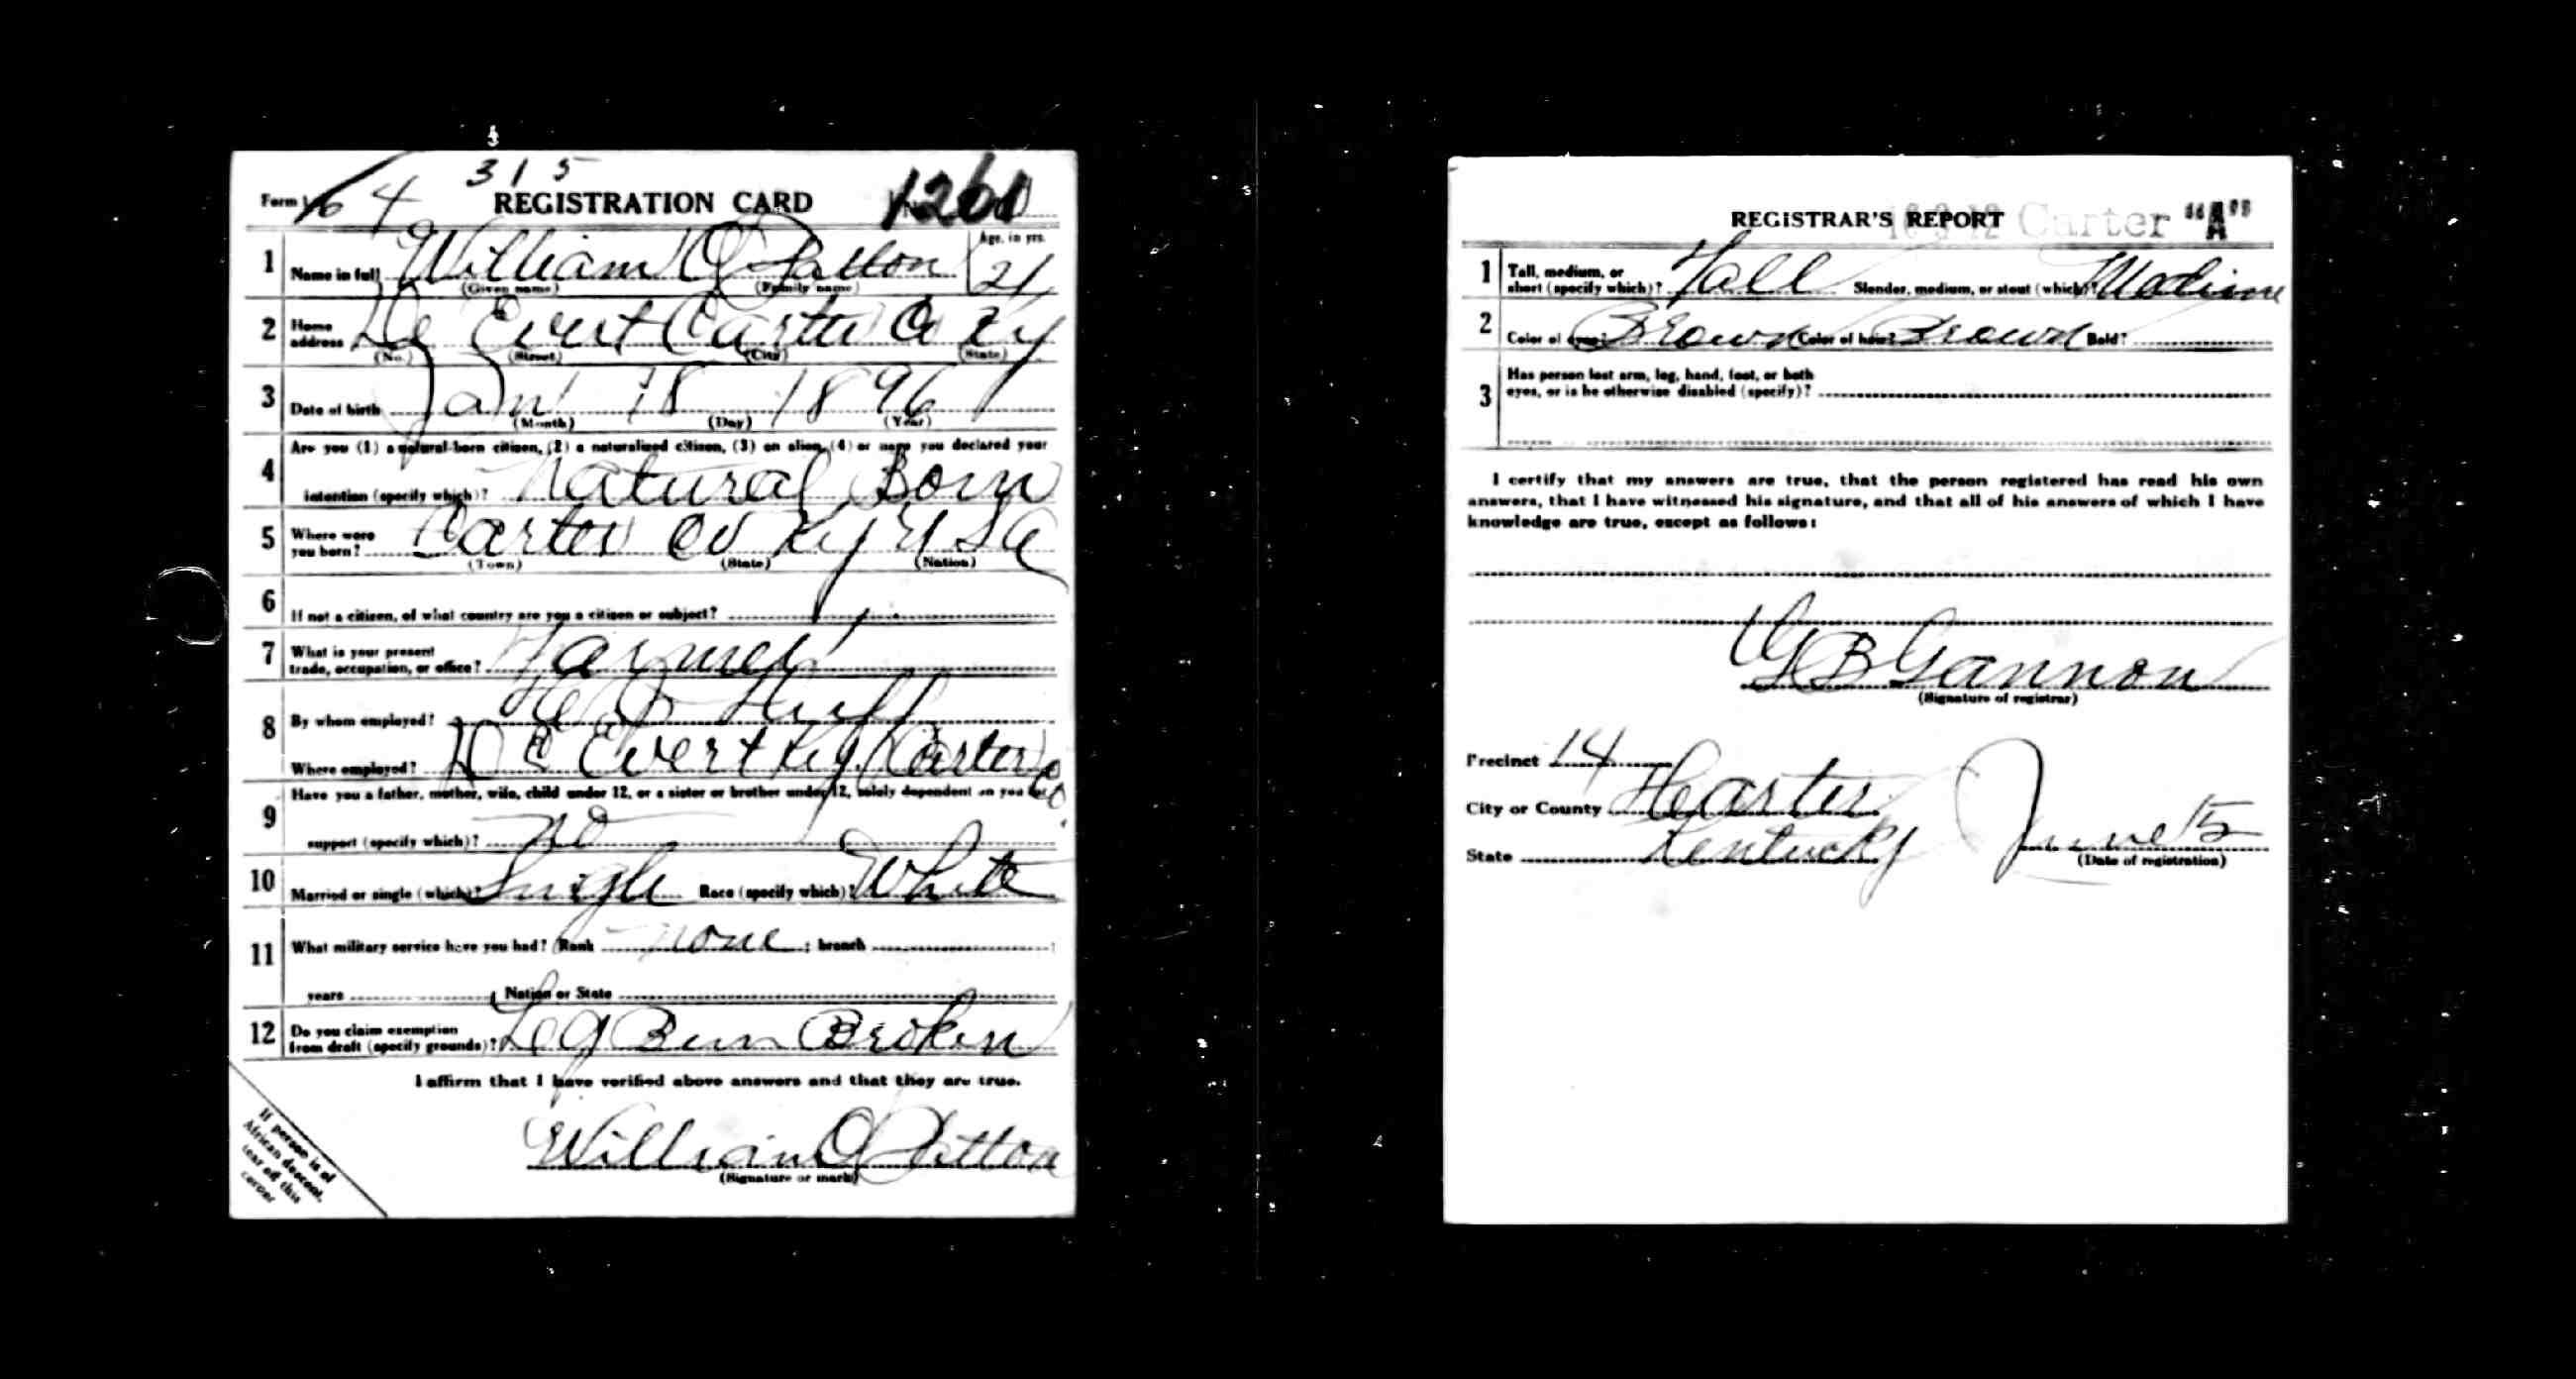 315
Form 1 64 REGISTRATION CARD No. 1260
1 Name in full William O Patton Age, in yrs. 21
(Given name) (Family name)
2 Home address De Evert Carter Co Ky
(No.) (Street) (City) (State)
3 Date of birth Jan 18 1896
(Month) (Day) (Year)
4 Are you (1) a natural-born citizen, (2) a naturalized citizen, (3) an alien, (4) or have you declared your
intention (specify which)? Natural Born
5 Where were you born? Carter Co Ky USA
(Town) (State) (Nation)
6 If not a citizen, of what country are you a citizen or subject?
7 What is your present trade, occupation, or office? Farmer
8 By whom employed? Huff
Where employed? De Evert Ky Carter Co
9 Have you a father, mother, wife, child under 12, or a sister or brother under 12, solely dependent on you for
support (specify which)? No
10 Married or single (which)? Single Race (specify which)? White
11 What military service have you had? Rank none ; branch
years ; Nation or State
12 Do you claim exemption from draft (specify grounds)? Leg Bin Broken
I affirm that I have verified above answers and that they are true.
William O Patton
(Signature or mark)
If person is of
African descent,
tear off this
corner
REGISTRAR'S REPORT 16-3-12 Carter "A"
1 Tall, medium, or short (specify which)? Tall Slender, medium, or stout (which)? Medium
2 Color of eyes? Brown Color of hair? Brown Bald?
3 Has person lost arm, leg, hand, foot, or both
eyes, or is he otherwise disabled (specify)?
I certify that my answers are true, that the person registered has read his own
answers, that I have witnessed his signature, and that all of his answers of which I have
knowledge are true, except as follows:
G B Gannon
(Signature of registrar)
Precinct 14
City or County Carter
State Kentucky June 5
(Date of registration)